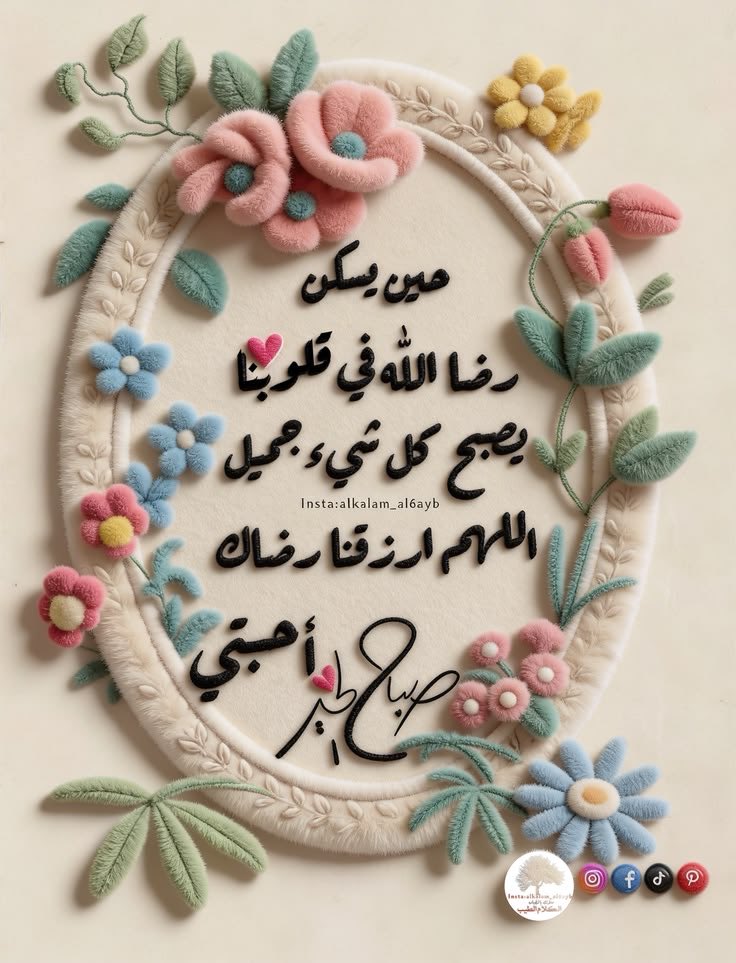 حين يسكن
رضا الله في قلوبنا
يصبح كل شيء جميل
Insta:alkalam_al6ayb
اللهم ارزقنا رضاك
صباح الخير أحبتي
Insta:alkalam_al6ayb
الكلام الطيب